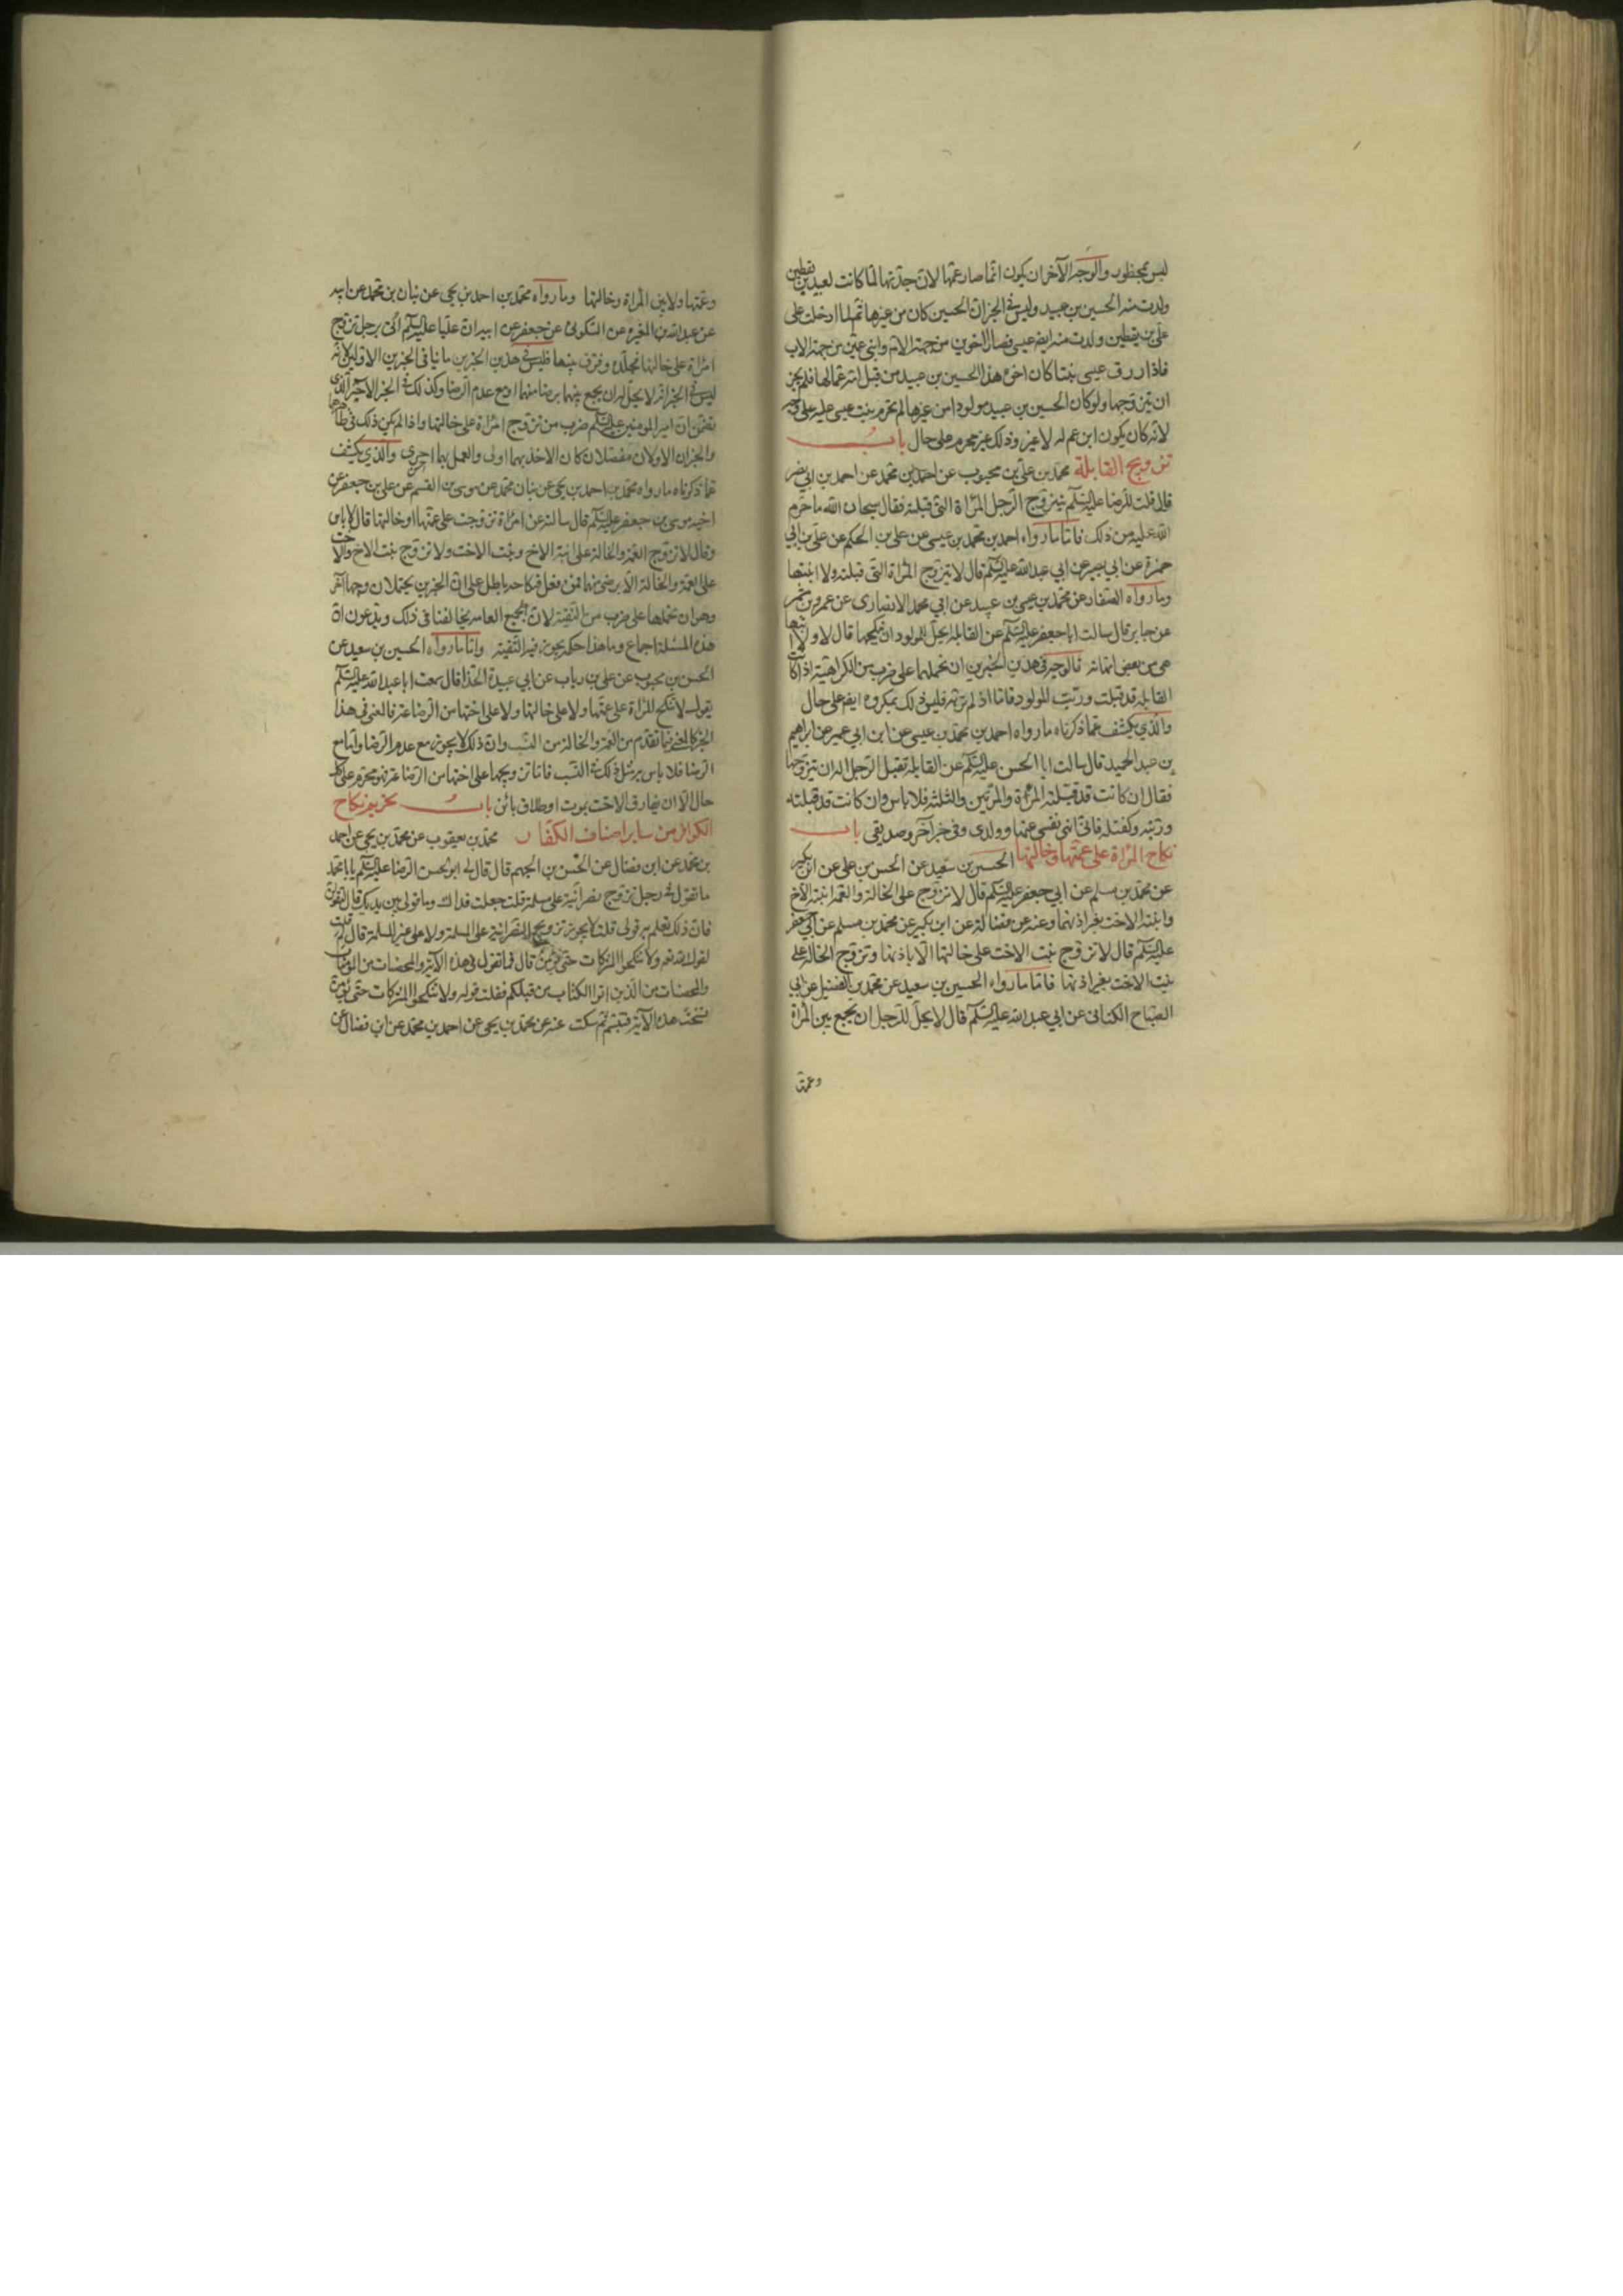 ليس بمحظور والوجه الآخر ان يكون انما صار عمها لان جدتها لما كانت لعبيد بن يقطين
ولدت منه الحسين بن عبيد وليس في الخبر ان الحسين كان من غيرها ثم لما ادخلت على
علي بن يقطين ولدت منه ايضا عيسى فصارا اخوين من جهة الام وابنى عمين من جهة الاب
فاذا رزق عيسى بنتا كان اخوه هذا الحسين بن عبيد من قبل امه عما لها فلم يجز
ان يتزوجها ولو كان الحسين بن عبيد مولودا من غيرها لم تحرم بنت عيسى عليه على وجه
لانه كان يكون ابن عم له لا غير وذلك غير محرم على حال باب
تزويج القابلة محمد بن علي بن محبوب عن احمد بن محمد عن احمد بن ابي نصر
قال قلت للرضا عليه السلم يتزوج الرجل المرأة التي قبلته فقال سبحان الله ما حرم
الله عليه من ذلك فاما ما رواه احمد بن محمد بن عيسى عن علي بن الحكم عن علي بن ابي
حمزة عن ابي بصير عن ابي عبد الله عليه السلم قال لا يتزوج المرأة التي قبلته ولا ابنتها
وما رواه الصفار عن محمد بن عيسى بن عبيد عن ابي محمد الانصاري عن عمرو بن شمر
عن جابر قال سالت ابا جعفر عليه السلم عن القابلة يحل للمولود ان ينكحها قال لا ولا ابنتها
هي من بعض امهاته فالوجه في هذين الخبرين ان نحملهما على ضرب من الكراهية اذا كانت
القابلة قد قبلت وربت المولود فاما اذا لم تربه فليس ذلك بمكروه ايضا على حال
والذي يكشف عما ذكرناه ما رواه احمد بن محمد بن عيسى عن ابن ابي عمير عن ابراهيم
بن عبد الحميد قال سالت ابا الحسن عليه السلم عن القابلة تقبل الرجل اله ان يتزوجها
فقال ان كانت قد قبلته المرة والمرتين والثلثة فلا باس وان كانت قد قبلته
وربته وكفلته فاني انهى نفسي عنها وولدي وفي خبر آخر وصديقي باب
نكاح المرأة على عمتها وخالتها الحسين بن سعيد عن الحسن بن علي عن ابن بكير
عن محمد بن مسلم عن ابي جعفر عليه السلم قال لا تزوج على الخالة والعمة ابنة الاخ
وابنة الاخت بغير اذنهما وعنه عن فضالة عن ابن بكير عن محمد بن مسلم عن ابي جعفر
عليه السلم قال لا تزوج بنت الاخت على خالتها الا باذنها وتزوج الخالة على
بنت الاخت بغير اذنها فاما ما رواه الحسين بن سعيد عن محمد بن الفضيل عن ابي
الصباح الكناني عن ابي عبد الله عليه السلم قال لا يحل للرجل ان يجمع بين المرأة
وعمتها
وعمتها ولا بين المرأة وخالتها وما رواه محمد بن احمد بن يحيى عن بنان بن محمد عن ابيه
عن عبد الله بن المغيرة عن السكوني عن جعفر عن ابيه ان عليا عليه السلم اتى برجل تزوج
امرأة على خالتها فجلده وفرق بينهما فليس في هذين الخبرين ما ينافي الخبرين الاولين لانه
ليس في الخبر انه لا يحل له ان يجمع بينهما برضا منهما او مع عدم الرضا وكذلك في الخبر الاخير الذي
تضمن ان امير المومنين عليه السلم ضرب من تزوج امرأة على خالتها واذا لم يكن ذلك في ظاهرهما
والخبران الاولان مفصلان كان الاخذ بهما اولى والعمل بهما احرى والذي يكشف
عما ذكرناه ما رواه محمد بن احمد بن يحيى عن بنان محمد عن موسى بن القسم عن علي بن جعفر عن
اخيه موسى بن جعفر عليه السلم قال سالته عن امرأة تزوجت على عمتها او خالتها قال لا باس
وقال لا تزوج العمة والخالة على ابنة الاخ وبنت الاخت ولا تزوج بنت الاخ والاخت
على العمة والخالة الا برضى منهما فمن فعل فنكاحه باطل على ان الخبرين يحتملان وجها آخر
وهو ان نحملها على ضرب من التقية لان جميع العامة يخالفنا في ذلك ويدعون ان
هذه المسئلة اجماع وما هذا حكمه يجوز فيه التقية واما ما رواه الحسين بن سعيد عن
الحسن بن محبوب عن علي بن رياب عن ابي عبيدة الحذا قال سمعت ابا عبد الله عليه السلم
يقول لا تنكح المرأة على عمتها ولا على خالتها ولا على اختها من الرضاعة فالمعنى في هذا
الخبر كالمعنى فيما تقدم من العمة والخالة من النسب وان ذلك لا يجوز مع عدم الرضا واما مع
الرضا فلا باس به مثل ذلك في النسب فاما تزويجها على اختها من الرضاعة فهو محرم على كل
حال الا ان يفارق الاخت بموت او طلاق بائن باب تحريم نكاح
الكوافر من ساير اصناف الكفار محمد بن يعقوب عن محمد بن يحيى عن احمد
بن محمد عن ابن فضال عن الحسن بن الجهم قال قال لي ابو الحسن الرضا عليه السلم يا با محمد
ما تقول في رجل تزوج نصرانية على مسلمة قلت جعلت فداك وما قولي بين يديك قال لتقولن
فان ذلك تعلم به قولي قلت لا يجوز تزويج النصرانية على المسلمة ولا على غير المسلمة قال لم قلت
لقول الله تعه ولا تنكحوا المشركات حتى يؤمن قال فما تقول في هذه الآية والمحصنات من المؤمنات
والمحصنات من الذين اتوا الكتاب من قبلكم فقلت قوله ولا تنكحوا المشركات حتى يؤمن
نسخت هذه الآية فتبسم ثم سكت عنه عن محمد بن يحيى عن احمد بن محمد عن ابن فضال عن